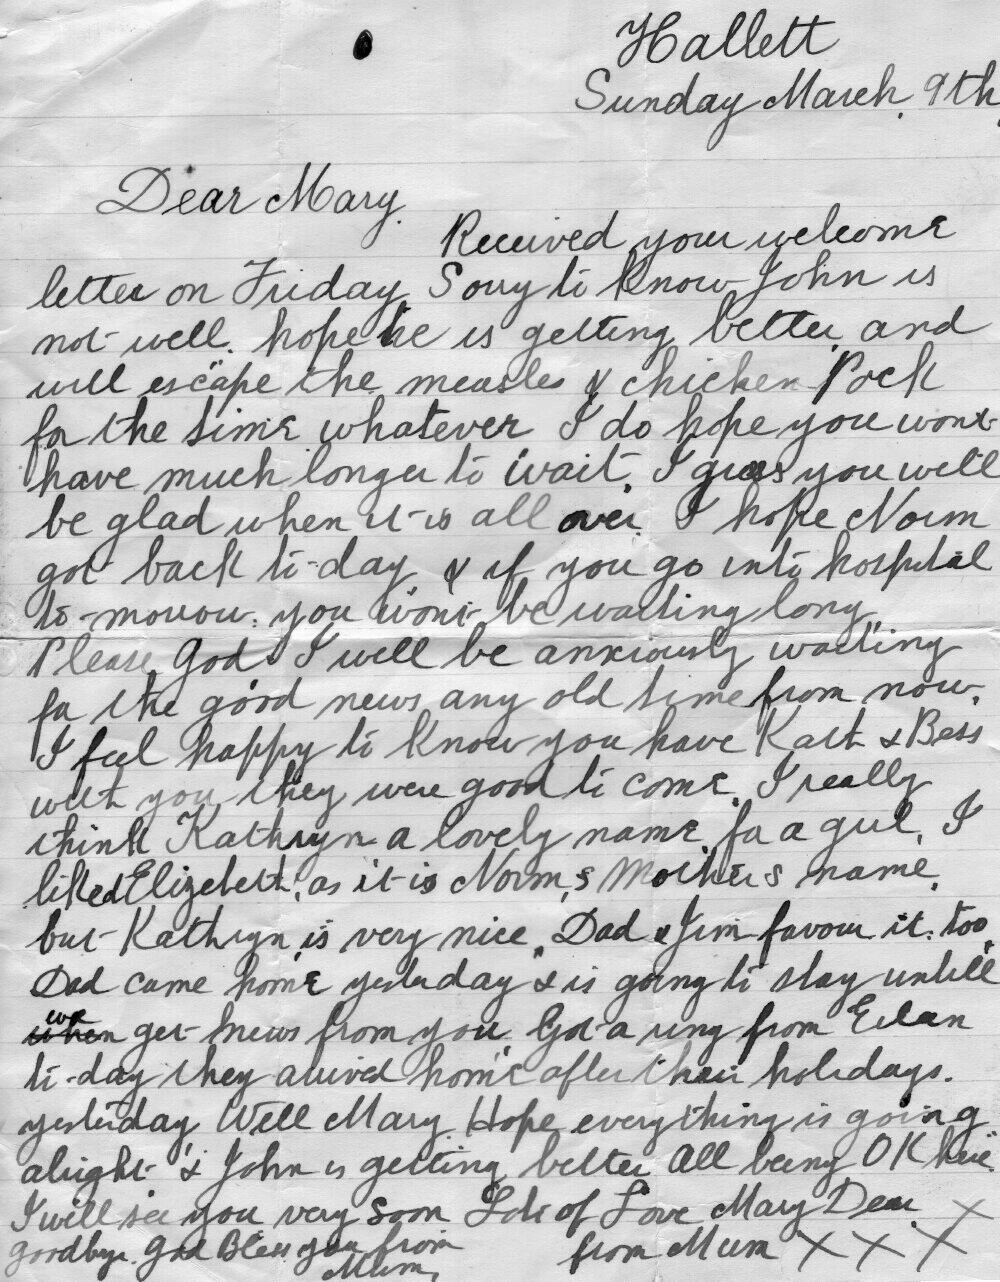 Hallett
Sunday March 9th
Dear Mary.
Received your welcome
letter on Friday. Sorry to know John is
not well. hope he is getting better and
will escape the measles & chicken Pock
for the time whatever I do hope you wont
have much longer to wait. I guess you will
be glad when it is all over I hope Norm
got back to-day & if you go into hospital
to-morrow. you wont be waiting long
Please God. I will be anxiously waiting
for the good news any old time from now.
I feel happy to know you have Kath & Bess
with you they were good to come. I really
think Kathryn a lovely name for a girl. I
liked Elizebeth, as it is Norm,s Mothers name.
but Kathryn is very nice. Dad & Jim favour it too
Dad came home yesterday & is going to stay untill
we
when get news from you. Got a ring from Eilan
to-day they arived home after their holidays.
yesterday Well Mary Hope everything is going
alright & John is getting better All being OK here
I will see you very soon Lots of Love Mary Dear X
goodbye. God Bless you from from Mum X X X
Mum,